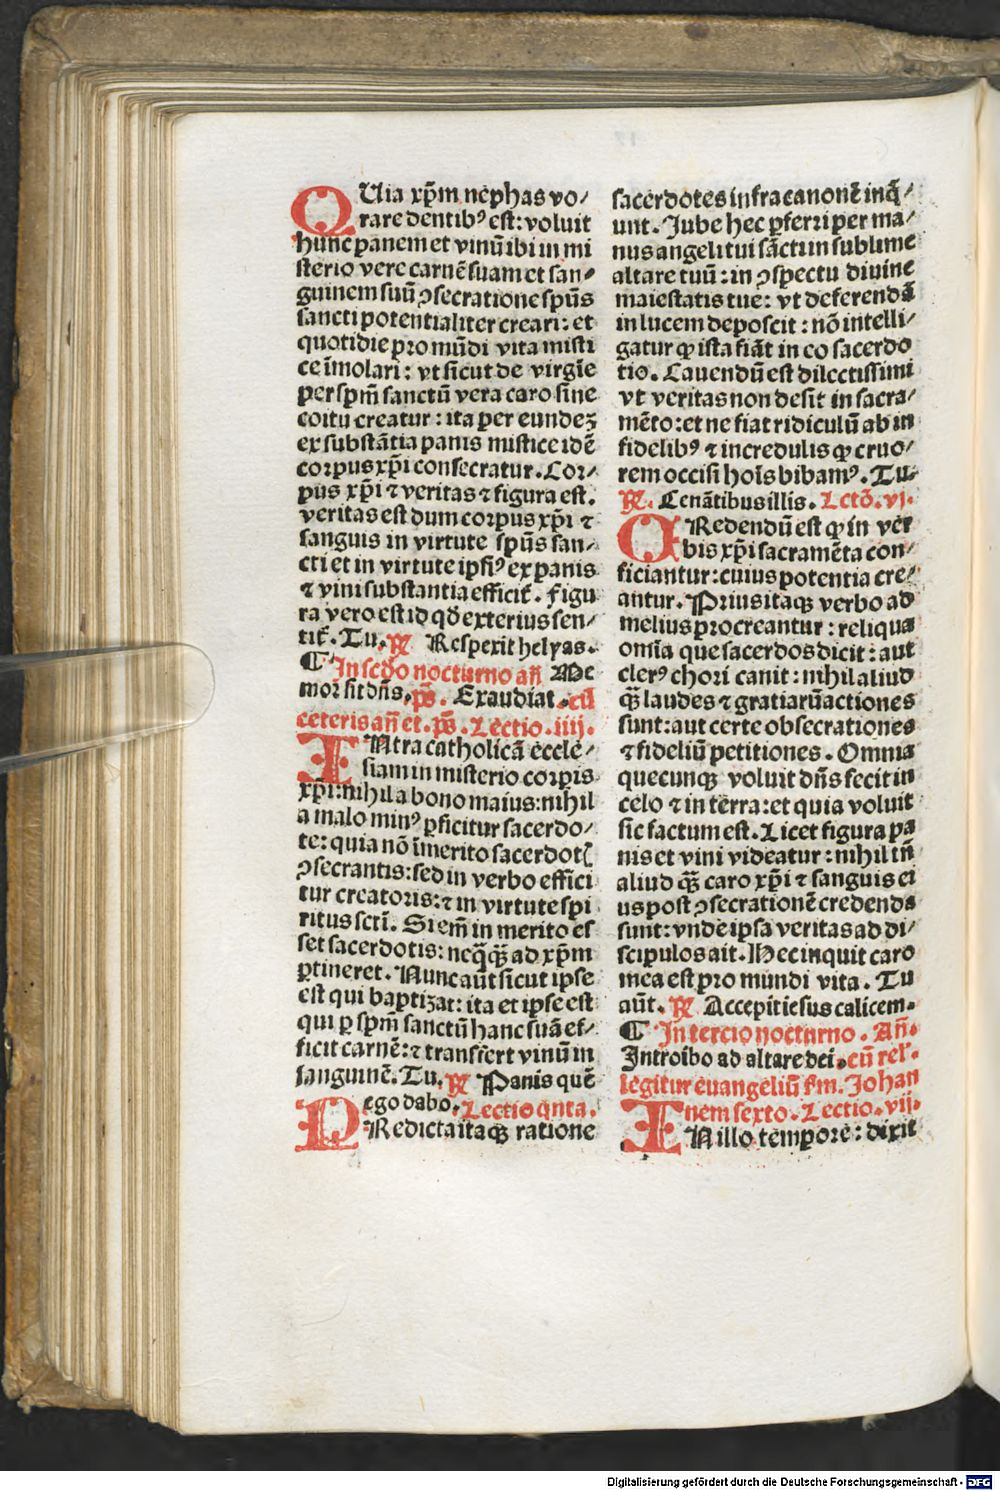 QUia xp̄m nephas vo⸗
rare dentib⁹ est: voluit
hunc panem et vinū ibi in mi
sterio vere carnē suam et san⸗
guinem suū ꝯsecratione spūs
sancti potentialiter creari: et
quotidie pro mūdi vita misti
ce īmolari: vt sicut de virgīe
per spm̄ sanctū vera caro sine
coitu creatur: ita per eundeꝫ
ex substātia panis mistice idē
corpus xp̄i consecratur. Cor⸗
pus xp̄i ⁊ veritas ⁊ figura est.
veritas est dum corpus xp̄i ⁊
sanguis in virtute spūs san⸗
cti et in virtute ipsi⁹ ex panis
⁊ vini substantia efficit̄. Figu
ra vero est id qd̄ exterius sen⸗
tit̄. Tu. ℟ Respexit helyas.
¶ In scd̄o nocturno an̄ Me
mor sit dn̄s. ps̄. Exaudiat. cū
ceteris an̄ et. ps̄. Lectio. iiij.
INtra catholicā eccle⸗
siam in misterio corpis
xp̄i: nihil a bono maius: nihil
a malo min⁹ ꝑficitur sacerdo⸗
te: quia nō īmerito sacerdotꝭ
ꝯsecrantis: sed in verbo effici
tur creatoris: ⁊ in virtute spi
ritus scti. Si em̄ in merito es
set sacerdotis: neqq̄ꝫ ad xp̄m
ꝑtineret. Nunc aūt sicut ipse
est qui baptizat: ita et ipse est
qui ꝑ spm̄ sanctū hanc suā ef⸗
ficit carnē: ⁊ transfert vinū in
sanguinē. Tu. ℟ Panis quē
ego dabo. Lectio qnta.
PRedicta itaqꝫ ratione
sacerdotes infra canonē inq̄⸗
unt. Jube hec ꝑferri per ma⸗
nus angeli tui sāctū in sublime
altare tuū: in ꝯspectu divine
maiestatis tue: vt deferendā
in lucem deposcit: nō intelli⸗
gatur ꝙ ista fiāt in eo sacerdo
tio. Cauendū est dilectissimi
vt veritas non desit in sacra⸗
mēto: et ne fiat ridiculū ab in
fidelib⁹ ⁊ incredulis ꝙ cruo⸗
rem occisi hoīs bibam⁹. Tu.
℟. Cenātibus illis. Lectō. vj.
CRedendū est ꝙ in ver
bis xp̄i sacramēta con⸗
ficiantur: cuius potentia cre⸗
antur. Prius itaqꝫ verbo ad
melius procreantur: reliqua
om̄ia que sacerdos dicit: aut
cler⁹ chori canit: nihil aliud
qꝫ̄ laudes ⁊ gratiarū actiones
sunt: aut certe obsecrationes
⁊ fideliū petitiones. Omnia
quecunqꝫ voluit dn̄s fecit in
celo ⁊ in terra: et quia voluit
sic factum est. Licet figura pa
nis et vini videatur: nihil tn̄
aliud qꝫ̄ caro xp̄i ⁊ sanguis ei
us post ꝯsecrationē credenda
sunt: vnde ipsa veritas ad di⸗
scipulos ait. Hec inquit caro
mea est pro mundi vita. Tu
aūt. ℟ Accepit iesus calicem.
¶ In tercio nocturno. An̄.
Introibo ad altare dei. cū rel̄.
legitur euangeliū fm. Johan
nem sexto. Lectio. vij.
IN illo tempore: dixit
Digitalisierung gefördert durch die Deutsche Forschungsgemeinschaft - DFG